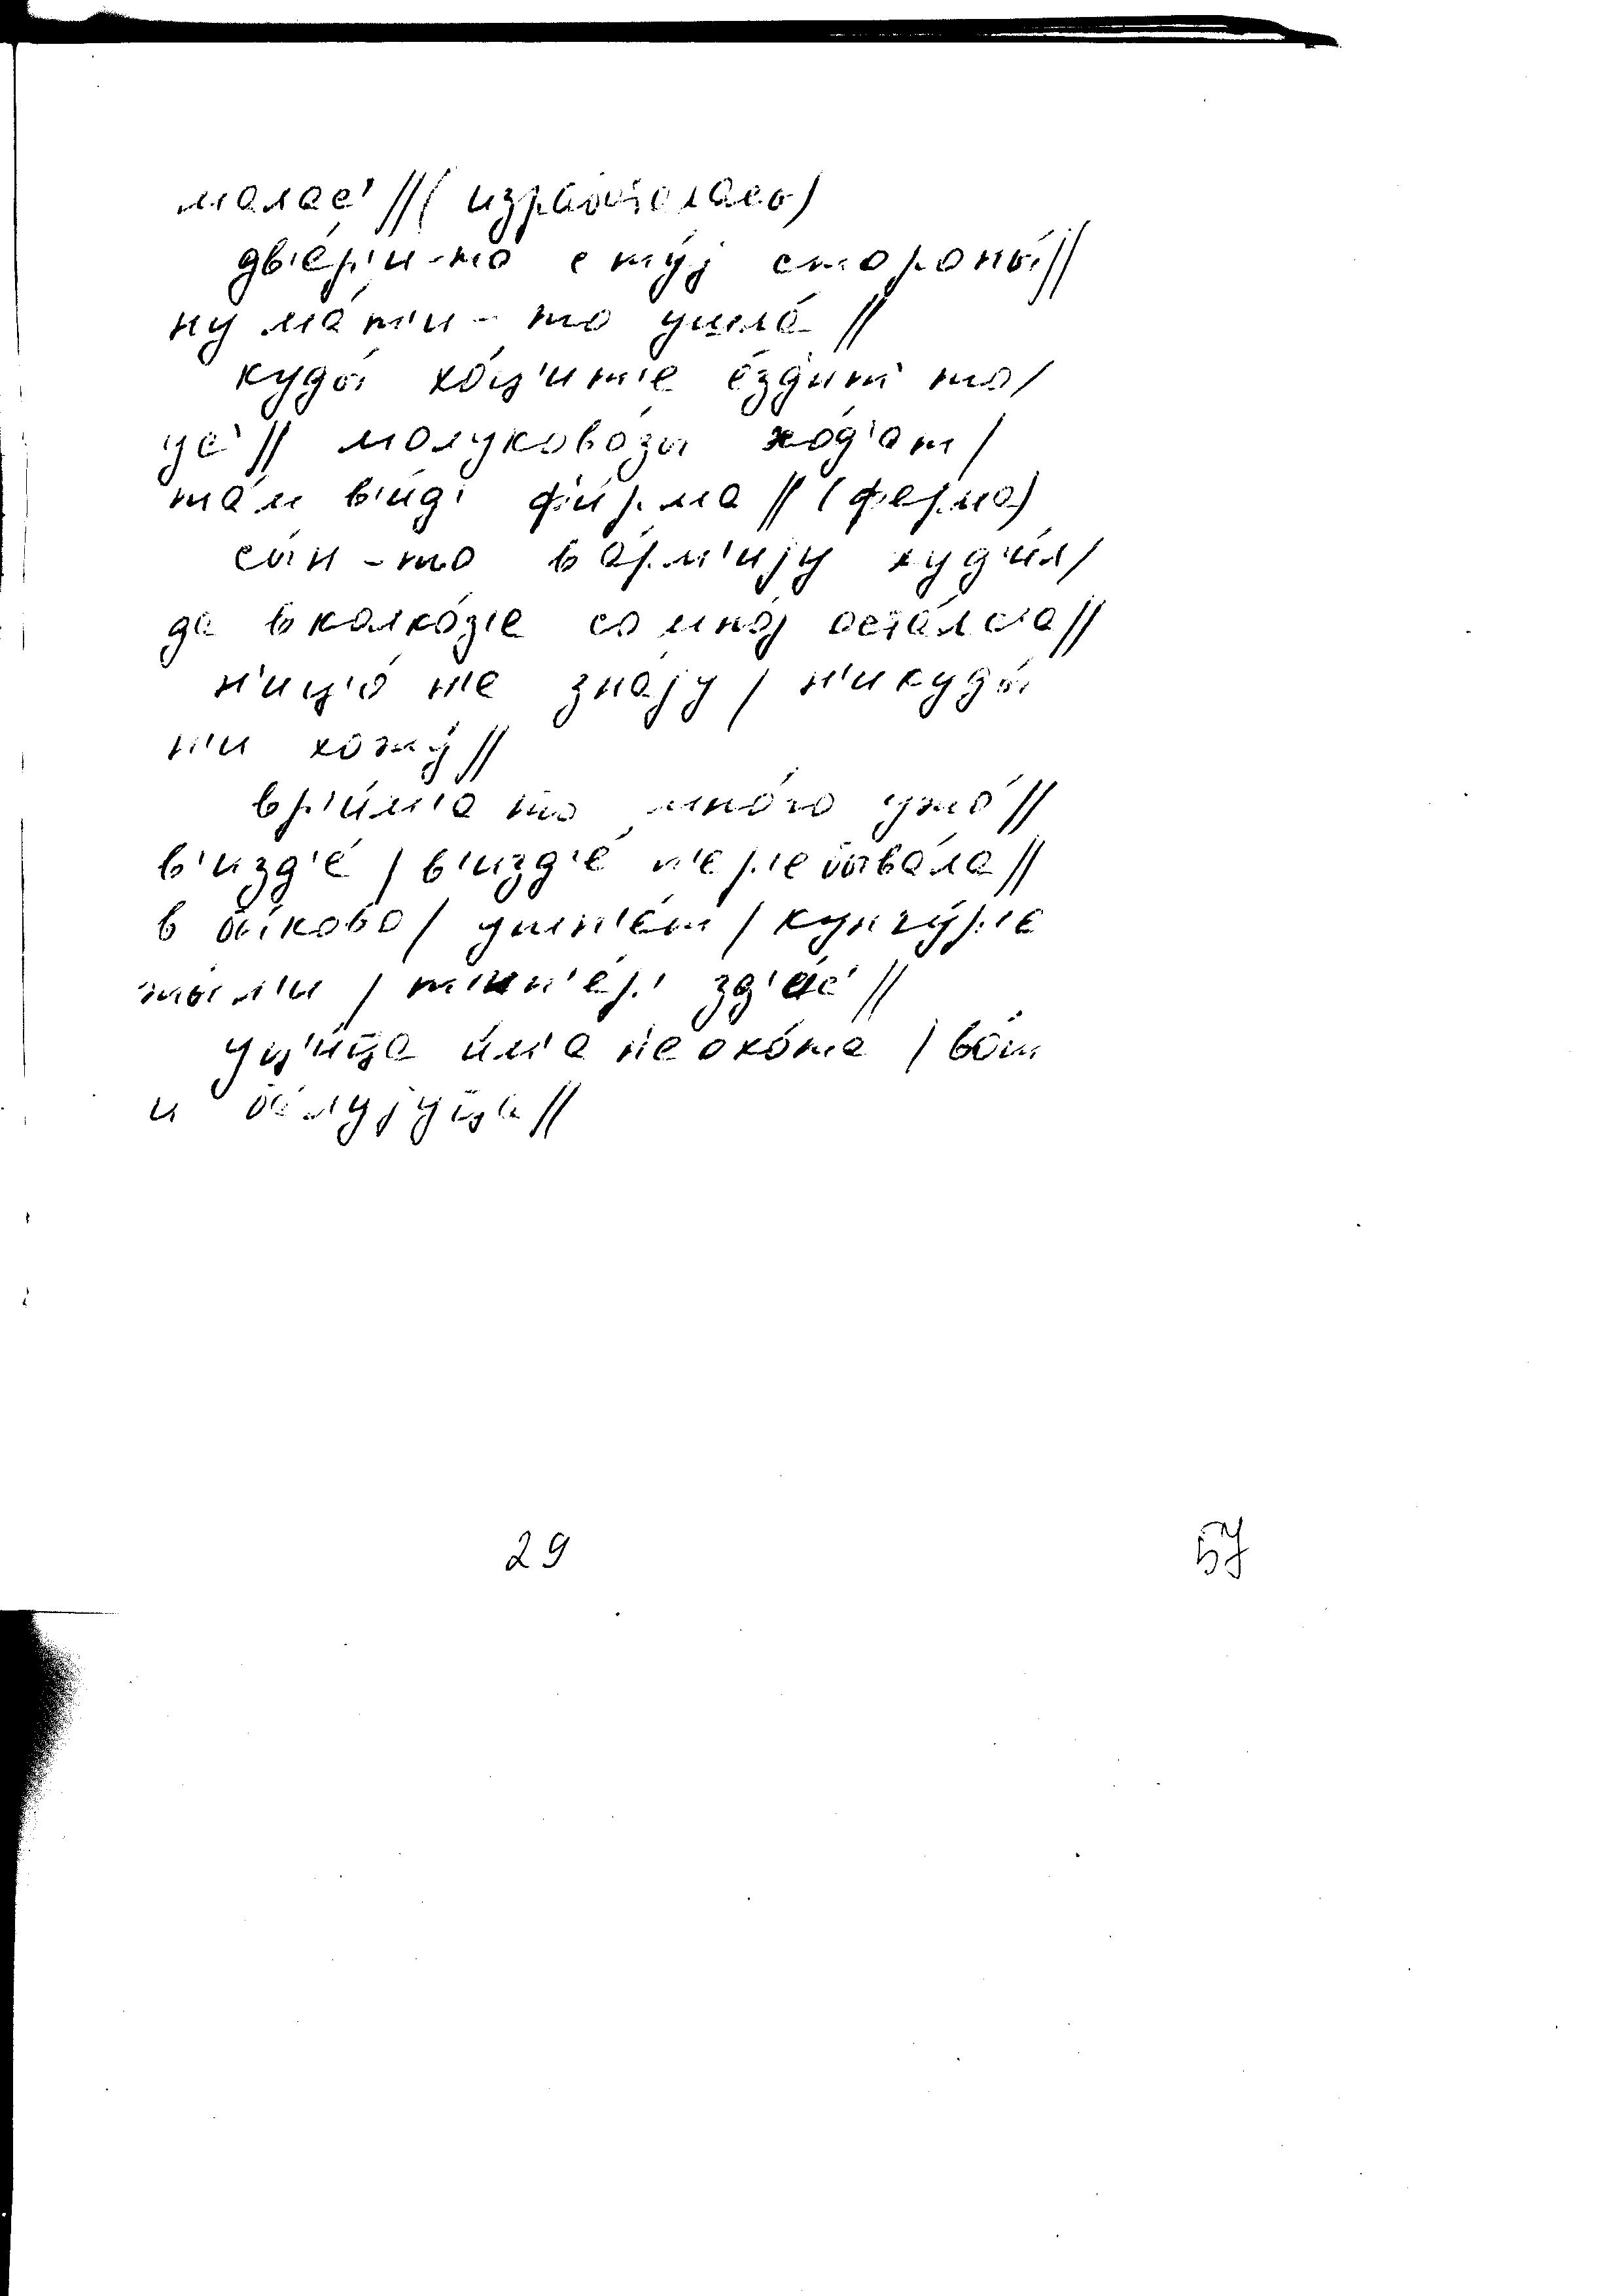 малас' // (изработалась)
дв'е́р'и-то с ту́j стороны́ //
ну ма́т'и-то ушла́ //
куды́ хо́ц'ит'е е́здит' то /
це' // молуково́зы хо́д'ат /
та́м в'ид' ф'и́рма // (ферма)
сы́н-то в а́рм'иjу худ'и́л /
да в колхо́з'е со мно́j оста́лс'а //
н'ицо́ н'е зна́jу / н'икуды́
н'и хожу́ //
вр'и́м'а то мно́го ужо́ //
в'изд'е́ / в'изд'е́ п'ер'ебыва́ла //
в бы́ково / уп'т'е́м / кунгу́р'е
жы́л'и / т'ип'е́р' зд'ес' //
уц'и́ца и́м'а неохо́та / во́т
и балуjуца //
29
57